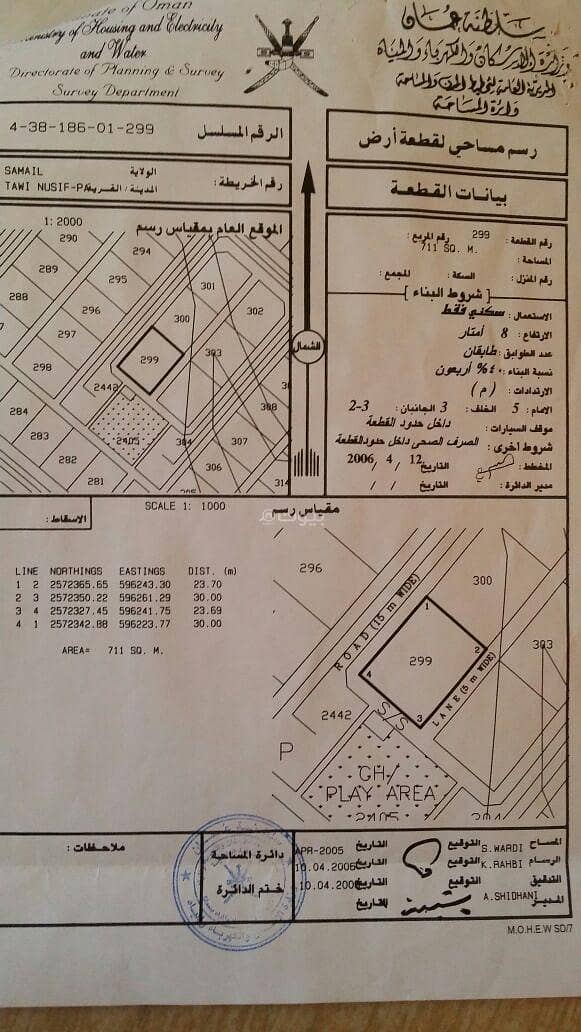 ate of Oman
Ministry of Housing and Electricity
and Water
Directorate of Planning & Survey
Survey Department
سلطنة عمان
وزارة الإسكان والكهرباء والمياه
المديرية العامة لتخطيط المدن والمساحة
دائرة المساحة
4-38-186-01-299
الرقم المسلسل
رسم مساحي لقطعة أرض
SAMAIL
الولاية
TAWI NUSIF-PA
المدينة / القرية
رقم الخريطة :
بيانات القطعة
1: 2000
الموقع العام بمقياس رسم
290
294
289
295
301
288
296
300
302
297
299
303
298
2442
308
284
2405
304
283
307
282
306
281
314
الشمال
رقم القطعة : 299 رقم المربع :
المساحة : 711 SQ. M.
رقم المنزل : السكة : المجمع :
[ شروط البناء ]
الاستعمال : سكني فقط
الارتفاع : 8 أمتار
عدد الطوابق : طابقان
نسبة البناء : ٤٠% أربعون
الارتدادات : (م)
الامام : 5 الخلف : 3 الجانبان : 3-2
موقف السيارات : داخل حدود القطعة
شروط أخرى : الصرف الصحى داخل حدودالقطعة
المخطط : التاريخ 12 / 4 / 2006
مدير الدائرة : التاريخ / /
الاسقاط :
SCALE 1: 1000
مقياس رسم
LINE NORTHINGS EASTINGS DIST. (m)
1 2 2572365.65 596243.30 23.70
2 3 2572350.22 596261.29 30.00
3 4 2572327.45 596241.75 23.69
4 1 2572342.88 596223.77 30.00
AREA= 711 SQ. M.
296
300
ROAD (15 m WIDE)
1
299
2
303
4
LANE (5 m WIDE)
2442
S/S
3
P
GH/
PLAY AREA
2405
304
بيوت
ملاحظات :
دائرة المساحة
ختم الدائرة
المساح S.WARDI التوقيع التاريخ APR-2005
الرسام K.RAHBI التوقيع التاريخ 10.04.2006
التدقيق التوقيع التاريخ 10.04.2006
المدير A.SHIDHANI التاريخ
M.O.H.E.W SD/7